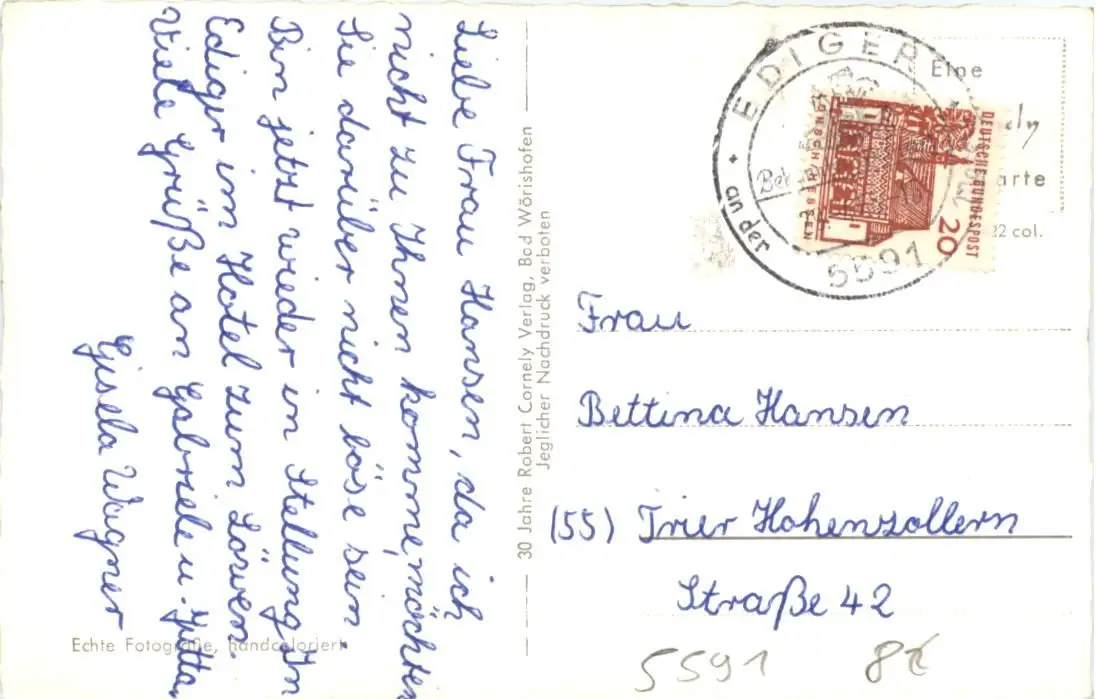 Liebe Frau Hansen, da ich
nicht zu Ihnen komme, möchten
Sie darüber nicht böse sein.
Bin jetzt wieder in Stellung In
Ediger im Hotel zum Löwen.
Viele Grüße an Gabriele u. Jutta,
Gisela Wagner
Echte Fotografie, handcoloriert
30 Jahre Robert Cornely Verlag, Bad Wörishofen
Jeglicher Nachdruck verboten
EDIGER
an der
5591
DEUTSCHE BUNDESPOST
20
LORSCH HESSEN
Eine
ely
arte
22 col.
Frau
Bettina Hansen
(55) Trier Hohenzollern
Straße 42
5591 8€